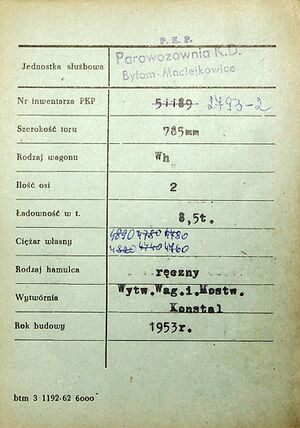 P. K. P.
Jednostka służbowa
Parowozownia K.D.
Bytom-Maciejkowice
Nr inwentarza PKP 51189 2793-2
Szerokość toru 785mm
Rodzaj wagonu Wh
Ilość osi 2
Ładowność w t. 8,5t.
Ciężar własny 4890 4780 4780
4820 4740 4760
Rodzaj hamulca ręczny
Wytwórnia Wytw.Wag.i.Mostw.
Konstal
Rok budowy 1953r.
btm 3 1192-62 6000